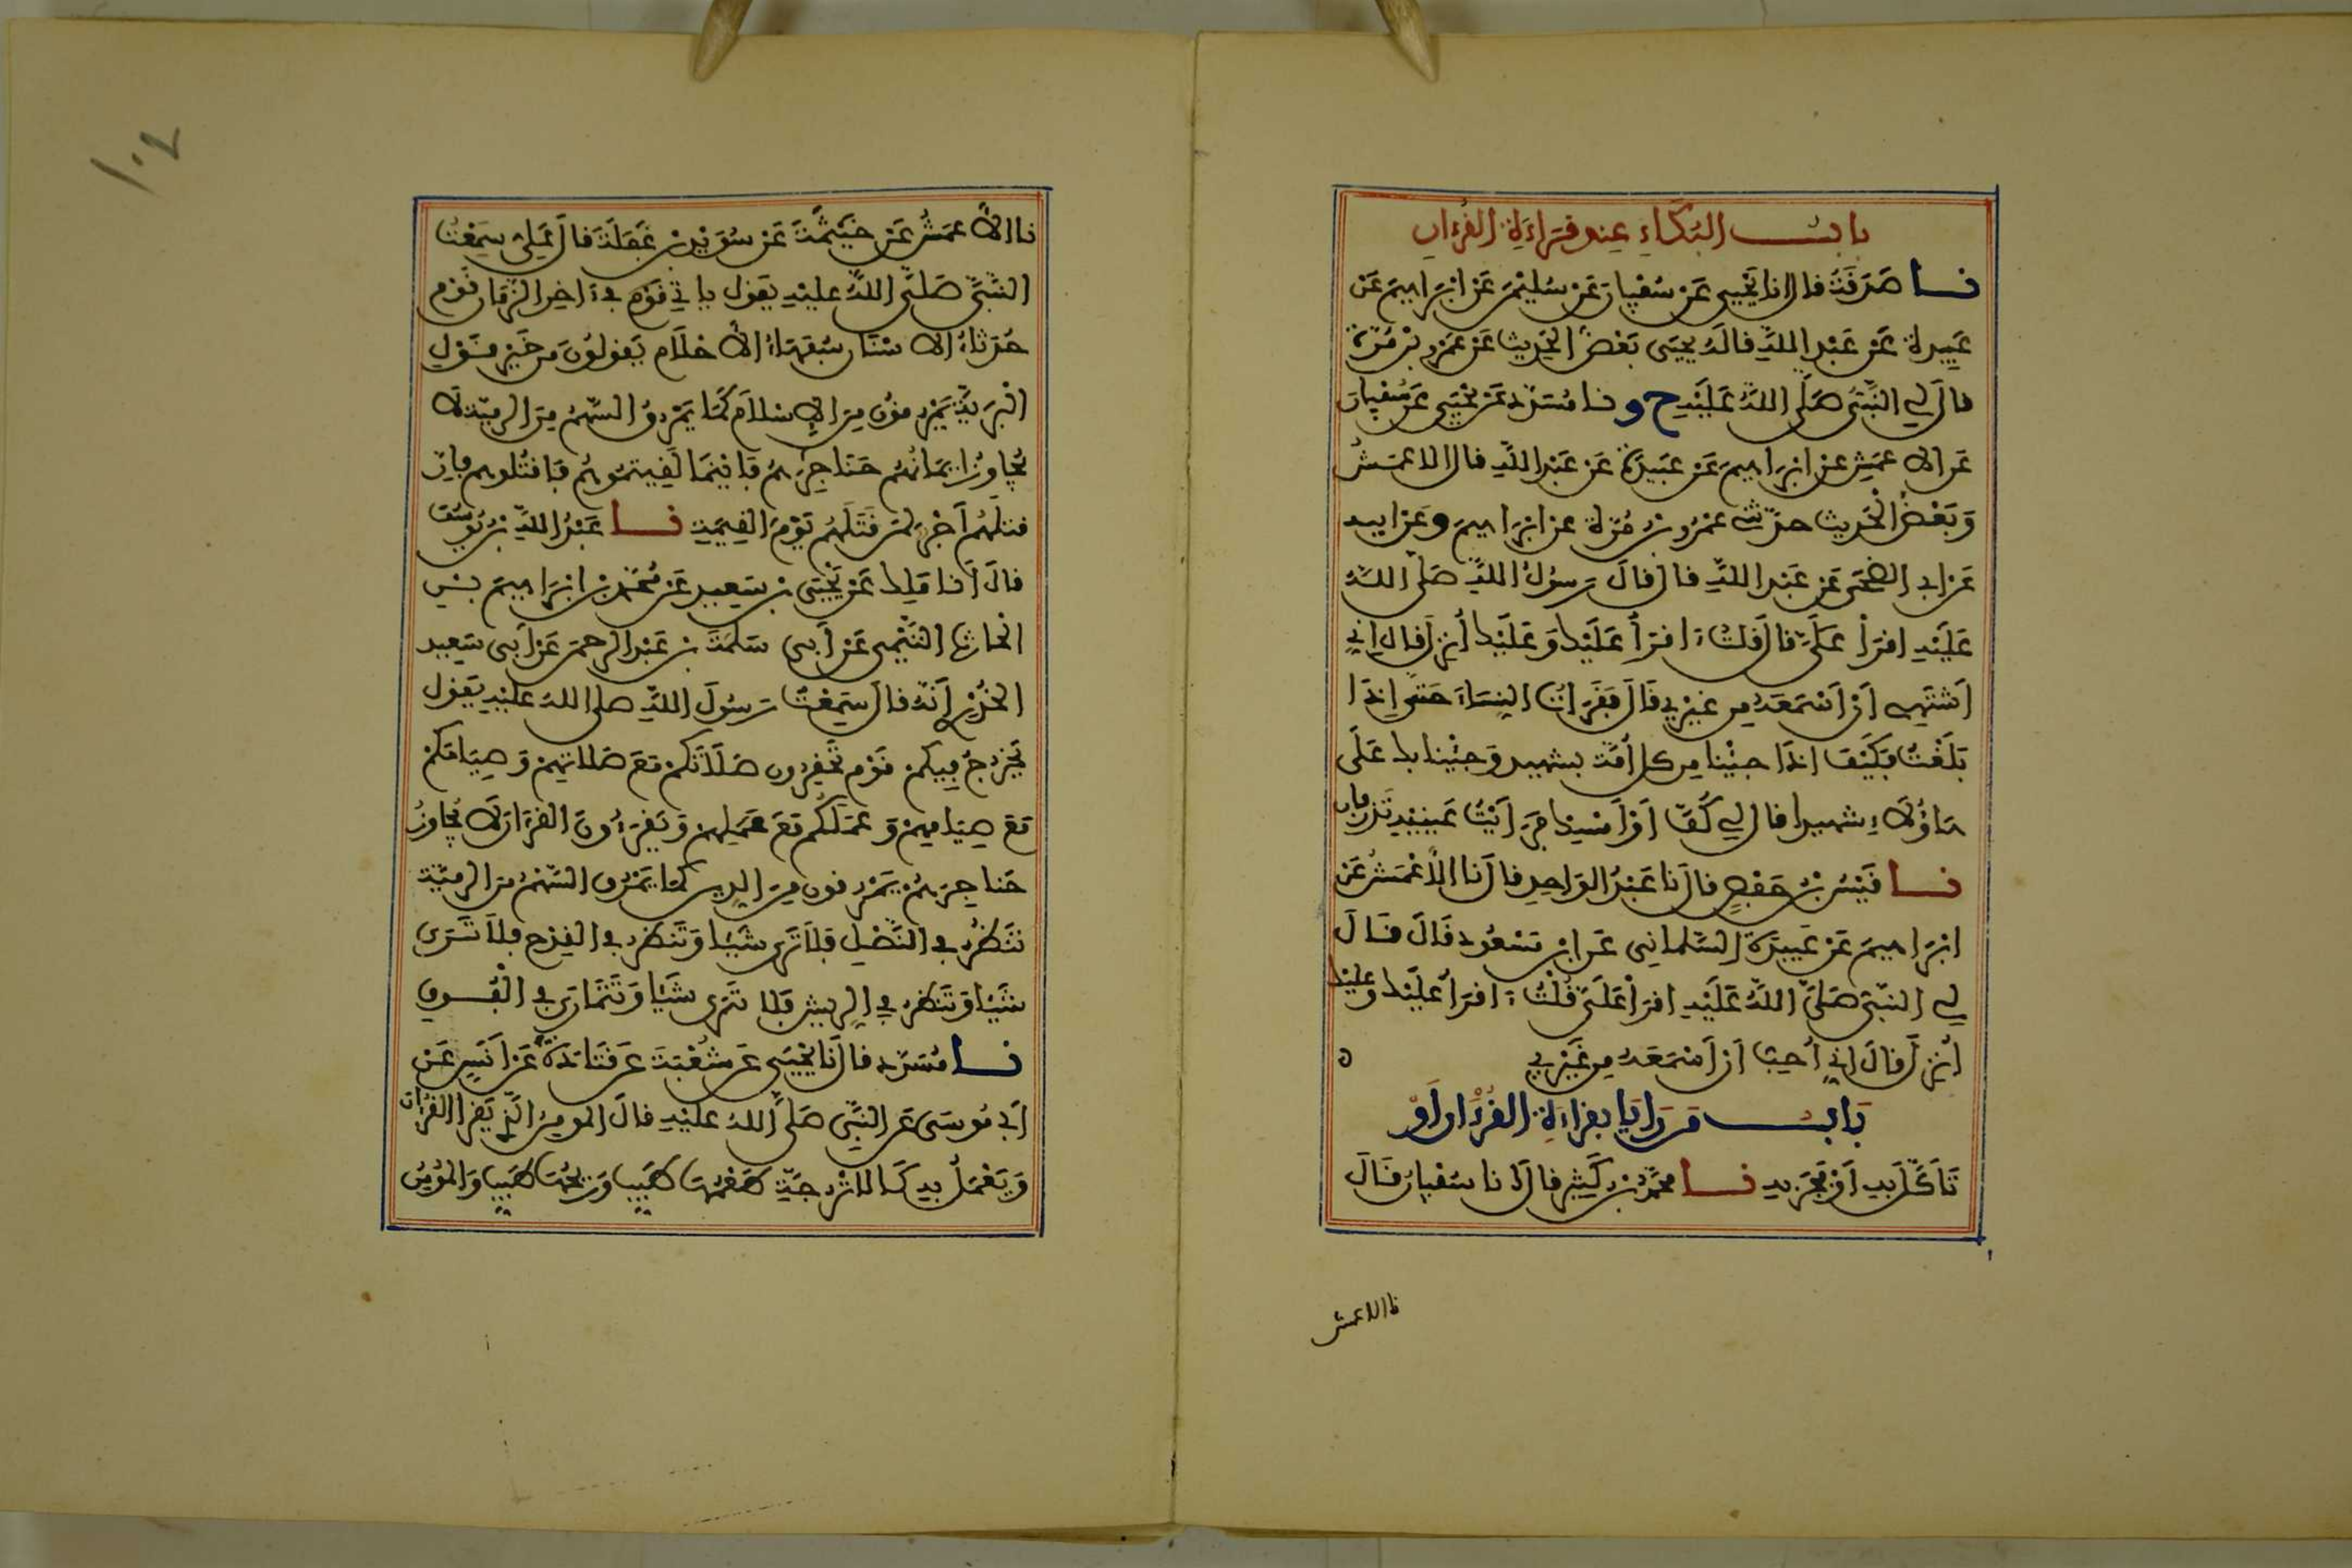 باب البكاء عند قراءة القرءان
نا صدقة قال انا يحيى عن سفيان عن سليمن عن ابراهيم عن
عبيدة عن عبد الله قال يحيى بعض الحديث عن عمرو بن مرة
قال لي النبي صلى الله عليه ح و نا مسدد عن يحيى عن سفيان
عن الاعمش عن ابراهيم عن عبيدة عن عبد الله قال الاعمش
وبعض الحديث حدثني عمرو بن مرة عن ابراهيم وعن ابيه
عن ابي الضحى عن عبد الله قال قال رسول الله صلى الله
عليه اقرأ علي قال قلت ءاقرأ عليك وعليك أنزل قال اني
أشتهي أن أسمعه من غيري قال فقرأت النساء حتى إذا
بلغت فكيف اذا جئنا من كل أمة بشهيد وجئنا بك على
هاؤلاء شهيدا قال لي كف أو أمسك فرأيت عينيه تذرفان
نا قيس بن حفص قال نا عبد الواحد قال نا الأعمش عن
ابراهيم عن عبيدة السلماني عن ابن مسعود قال قال
لي النبي صلى الله عليه اقرأ علي قلت ءاقرأ عليك وعليك
أنزل قال اني أحب أن أسمعه من غيري ه
باب من رايا بقراءة القرءان أو
تأكل به أو فجر به نا محمد بن كثير قال انا سفيان قال
نا الاعمش
١٠٢
نا الأعمش عن خيثمة عن سويد بن غفلة قال علي سمعت
النبي صلى الله عليه يقول ياتي قوم في ءاخر الزمان قوم
حدثاء الاسنان سفهاء الاحلام يقولون من خير قول
البرية يمرقون من الاسلام كما يمرق السهم من الرمية لا
يجاوز ايمانهم حناجرهم فاينما لقيتموهم فاقتلوهم فان
قتلهم أجر لمن قتلهم يوم القيمة نا عبد الله بن يوسف
قال أنا ملك عن يحيى بن سعيد عن محمد بن ابراهيم بن
الحارث التيمي عن أبي سلمة بن عبد الرحمن عن أبي سعيد
الخدري أنه قال سمعت رسول الله صلى الله عليه يقول
يخرج فيكم قوم تحقرون صلاتكم مع صلاتهم وصيامكم
مع صيامهم وعملكم مع عملهم ويقرءون القرءان لا يجاوز
حناجرهم يمرقون من الدين كما يمرق السهم من الرمية
تنظر في النصل فلا ترى شيئا وتنظر في القدح فلا ترى
شيئا وتنظر في الريش فلا ترى شيئا وتتمارى في الفوق
نا مسدد قال نا يحيى عن شعبة عن قتادة عن أنس عن
أبي موسى عن النبي صلى الله عليه قال المومن الذي يقرا القرءان
ويعمل به كالاترجة طعمها طيب وريحها طيب والمؤمن